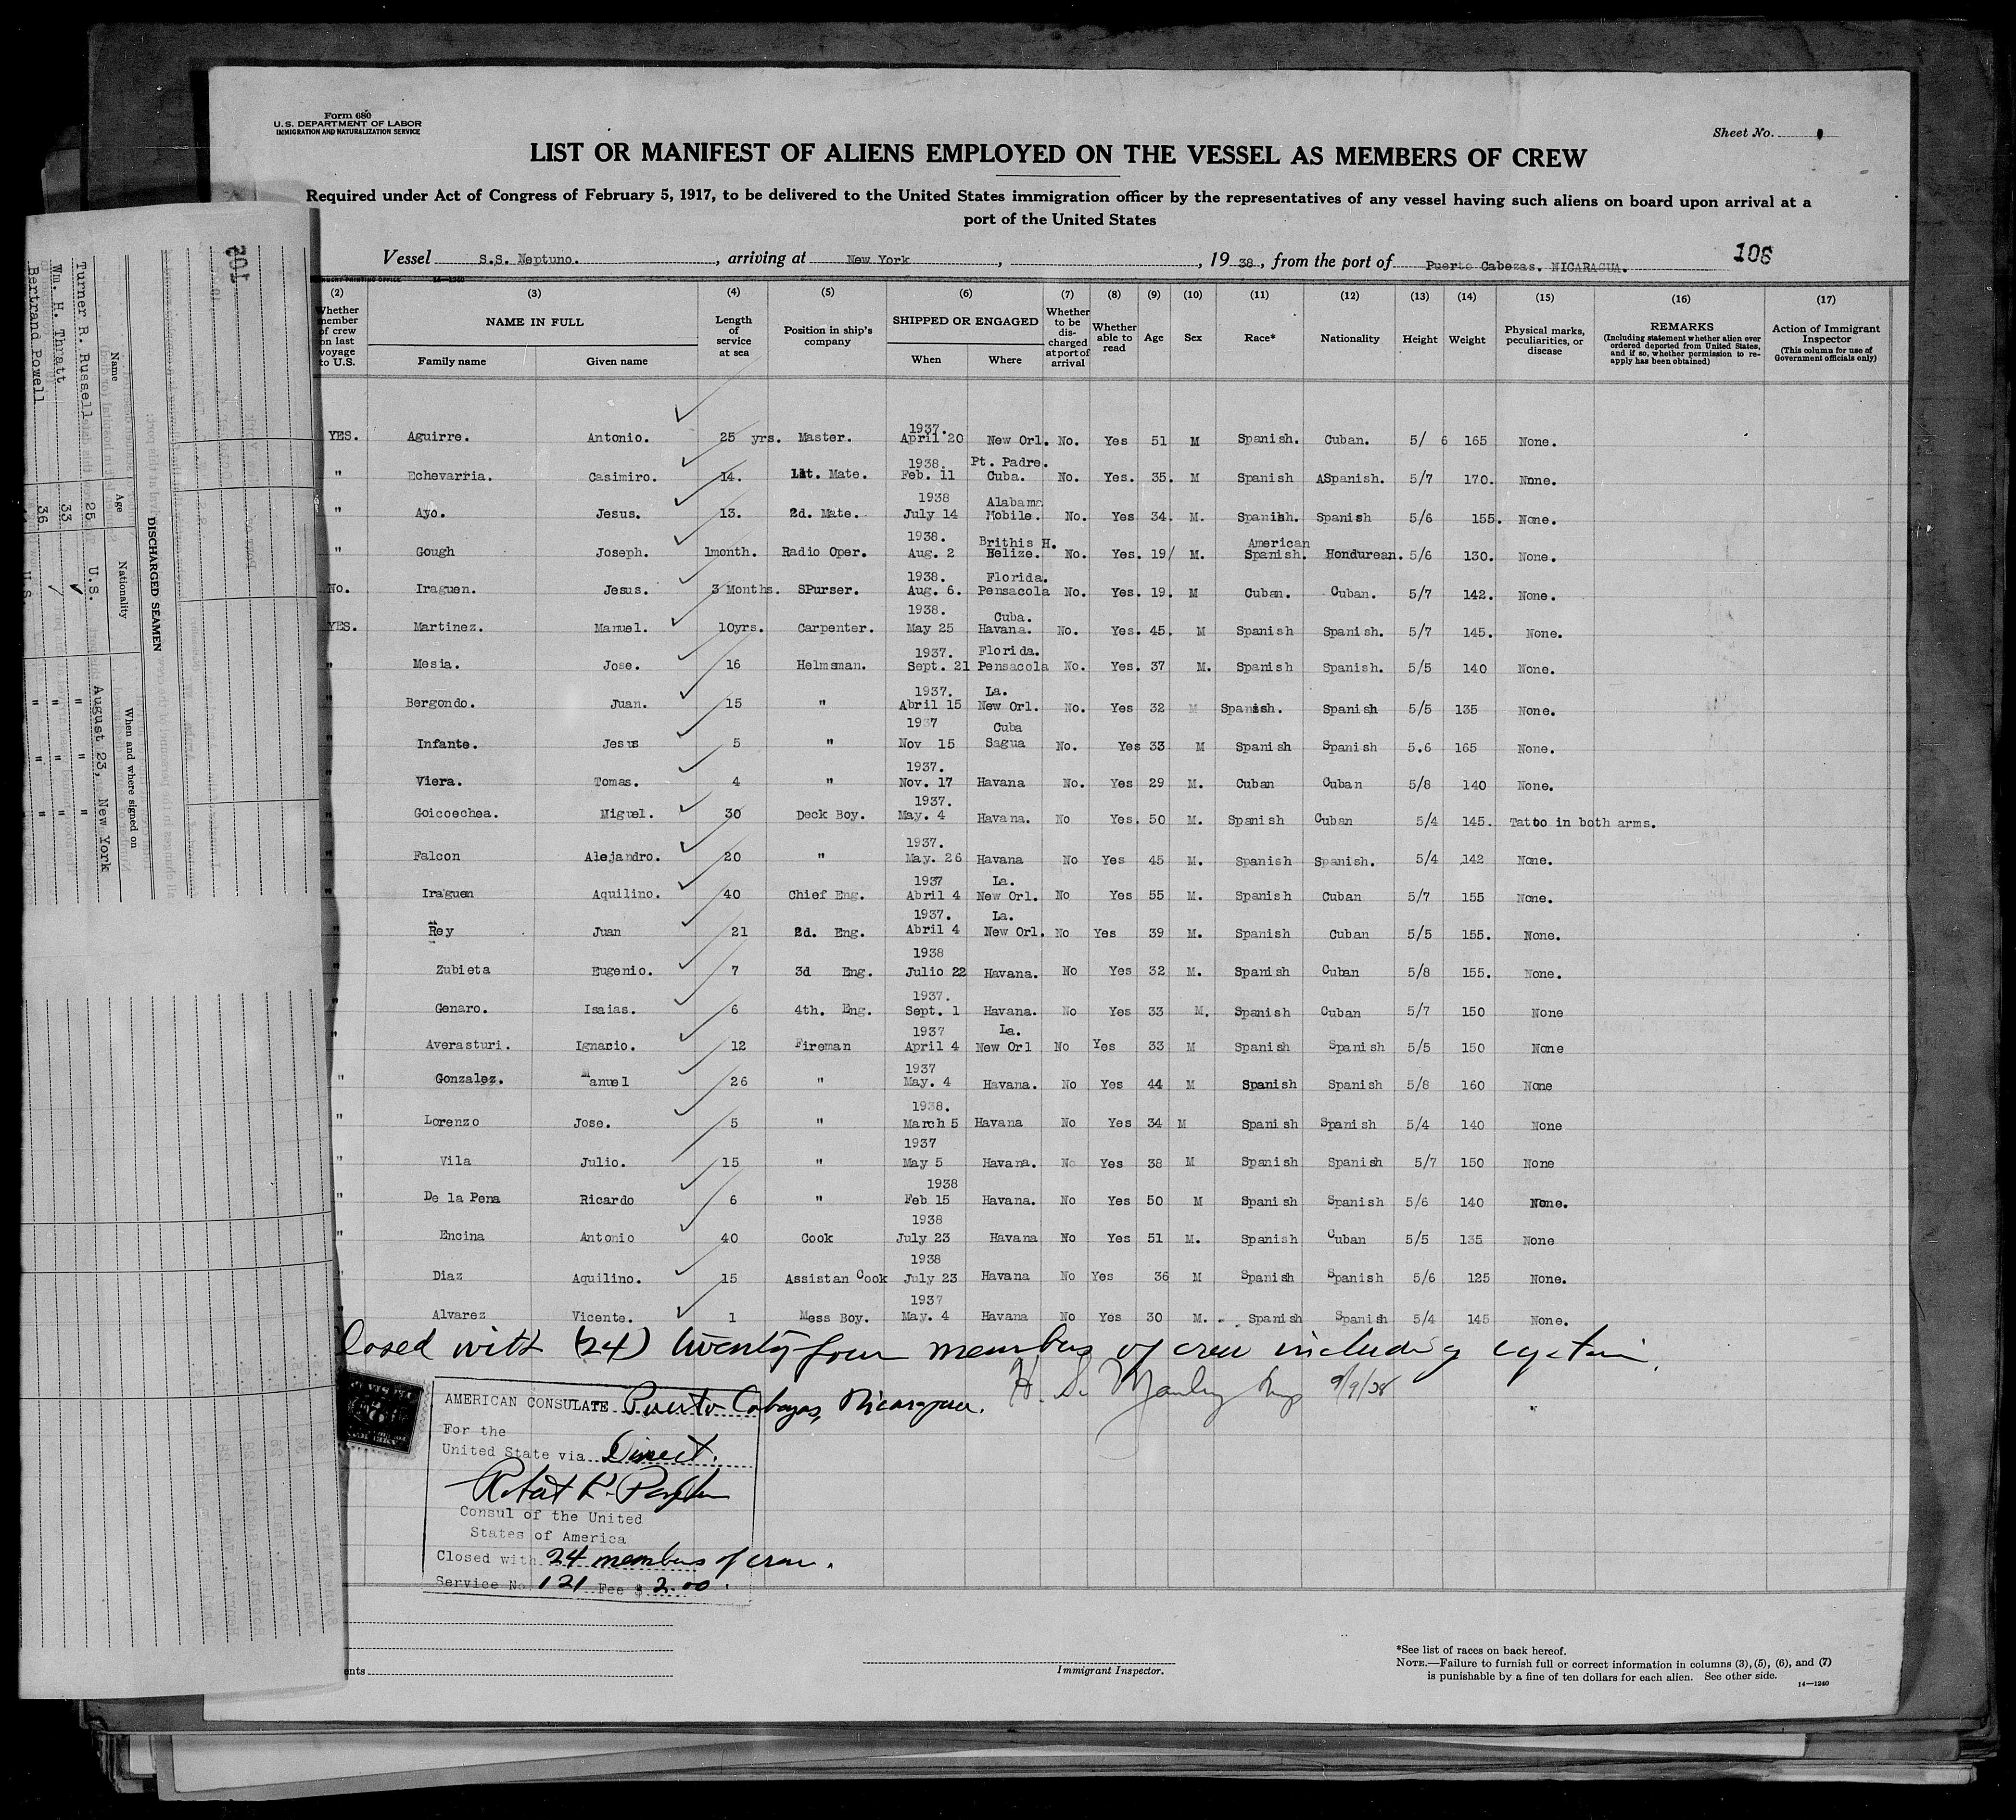 Form 680
U. S. DEPARTMENT OF LABOR
IMMIGRATION AND NATURALIZATION SERVICE
Sheet No.
LIST OR MANIFEST OF ALIENS EMPLOYED ON THE VESSEL AS MEMBERS OF CREW
Required under Act of Congress of February 5, 1917, to be delivered to the United States immigration officer by the representatives of any vessel having such aliens on board upon arrival at a
port of the United States
Vessel S.S. Neptuno. , arriving at New York , , 19 38 , from the port of Puerto Cabezas. NICARAGUA. 106
(2) (3) (4) (5) (6) (7) (8) (9) (10) (11) (12) (13) (14) (15) (16) (17)
Whether member of crew on last voyage to U.S. NAME IN FULL Family name Given name Length of service at sea Position in ship's company SHIPPED OR ENGAGED When Where Whether to be discharged at port of arrival Whether able to read Age Sex Race* Nationality Height Weight Physical marks, peculiarities, or disease REMARKS (Including statement whether alien ever ordered deported from United States, and if so, whether permission to re-apply has been obtained) Action of Immigrant Inspector (This column for use of Government officials only)
YES. Aguirre. Antonio. 25 yrs. Master. 1937. April 20 New Orl. No. Yes 51 M Spanish. Cuban. 5/ 6 165 None.
" Echevarria. Casimiro. 14. 1st. Mate. 1938. Feb. 11 Pt. Padre. Cuba. No. Yes. 35. M Spanish ASpanish. 5/7 170. None.
" Ayo. Jesus. 13. 2d. Mate. 1938 July 14 Alabama Mobile. No. Yes 34. M. Spanish. Spanish 5/6 155. None.
" Gough Joseph. 1month. Radio Oper. 1938. Aug. 2 Brithis H. Belize. No. Yes. 19/ M. American Spanish. Hondurean. 5/6 130. None.
No. Iraguen. Jesus. 3 Months. SPurser. 1938. Aug. 6. Florida. Pensacola No. Yes. 19. M Cuban. Cuban. 5/7 142. None.
YES. Martinez. Manuel. 10yrs. Carpenter. 1938. May 25 Cuba. Havana. No. Yes. 45. M Spanish Spanish. 5/7 145. None.
" Mesia. Jose. 16 Helmsman. 1937. Sept. 21 Florida. Pensacola No. Yes. 37 M. Spanish Spanish. 5/5 140 None.
" Bergondo. Juan. 15 " 1937. Abril 15 La. New Orl. No. Yes 32 M Spanish. Spanish 5/5 135 None.
" Infante. Jesus 5 " 1937 Nov 15 Cuba Sagua No. Yes 33 M Spanish Spanish 5.6 165 None.
" Viera. Tomas. 4 " 1937. Nov. 17 Havana No. Yes 29 M. Cuban Cuban 5/8 140 None.
" Goicoechea. Miguel. 30 Deck Boy. 1937. May. 4 Havana. No Yes. 50 M. Spanish Cuban 5/4 145. Tattoo in both arms.
" Falcon Alejandro. 20 " 1937. May. 26 Havana No Yes 45 M. Spanish Spanish. 5/4 142 None.
" Iraguen Aquilino. 40 Chief Eng. 1937 Abril 4 La. New Orl. No Yes 55 M. Spanish Cuban 5/7 155 None.
" Rey Juan 21 2d. Eng. 1937. Abril 4 La. New Orl. No Yes 39 M. Spanish Cuban 5/5 155. None.
" Zubieta Eugenio. 7 3d Eng. 1938 Julio 22 Havana. No Yes 32 M. Spanish Cuban 5/8 155. None.
" Genaro. Isaias. 6 4th. Eng. 1937. Sept. 1 Havana. No Yes 33 M. Spanish Cuban 5/7 150 None
" Averasturi. Ignacio. 12 Fireman 1937 April 4 La. New Orl No Yes 33 M Spanish Spanish 5/5 150 None
" Gonzalez. Manuel 26 " 1937 May. 4 Havana. No Yes 44 M Spanish Spanish 5/8 160 None
" Lorenzo Jose. 5 " 1938. March 5 Havana No Yes 34 M Spanish Spanish 5/4 140 None
" Vila Julio. 15 " 1937 May 5 Havana. No Yes 38 M Spanish Spanish 5/7 150 None
" De la Pena Ricardo 6 " 1938 Feb 15 Havana. No Yes 50 M Spanish Spanish 5/6 140 None.
" Encina Antonio 40 Cook 1938 July 23 Havana No Yes 51 M. Spanish Cuban 5/5 135 None
" Diaz Aquilino. 15 Assistan Cook 1938 July 23 Havana No Yes 36 M Spanish Spanish 5/6 125 None.
" Alvarez Vicente. 1 Mess Boy. 1937 May. 4 Havana No Yes 30 M. Spanish Spanish 5/4 145 None.
Closed with (24) twenty four members of crew including captain.
9/9/38
AMERICAN CONSULATE Puerto Cabezas, Nicaragua.
For the
United State via Direct.
Consul of the United
States of America
Closed with 24 members of crew.
Service No 121 Fee $ 2.00.
Immigrant Inspector.
*See list of races on back hereof.
NOTE.—Failure to furnish full or correct information in columns (3), (5), (6), and (7)
is punishable by a fine of ten dollars for each alien. See other side.
14—1240
105
DISCHARGED SEAMEN
Name Age Nationality When and where signed on
Turner R. Russell 25 U.S. August 23, New York
Wm. H. Thratt 33 " " "
Bertrand Powell 36 " " "